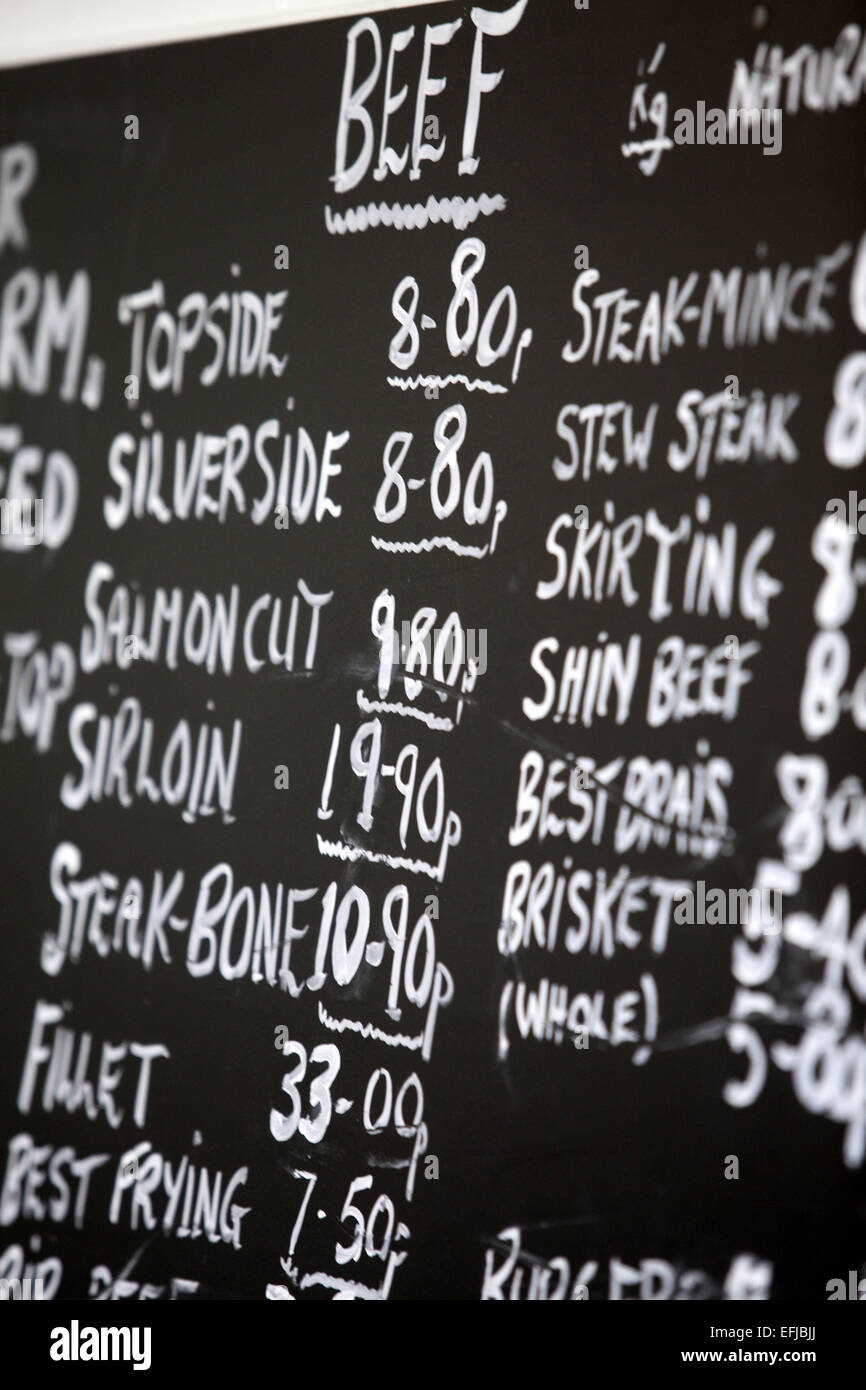 BEEF
Kg
TOPSIDE 8-80p
SILVERSIDE 8-80p
SALMONCUT 9.80p
SIRLOIN 19-90p
STEAK-BONE 10-90p
FILLET 33-00p
BEST FRYING 7-50p
RIB BEEF
STEAK-MINCE
STEW STEAK
SKIRTYING
SHIN BEEF
BEST BRAIS
BRISKET
(WHOLE)
TOP
alamy
Image ID: EFJBJJ
www.alamy.com